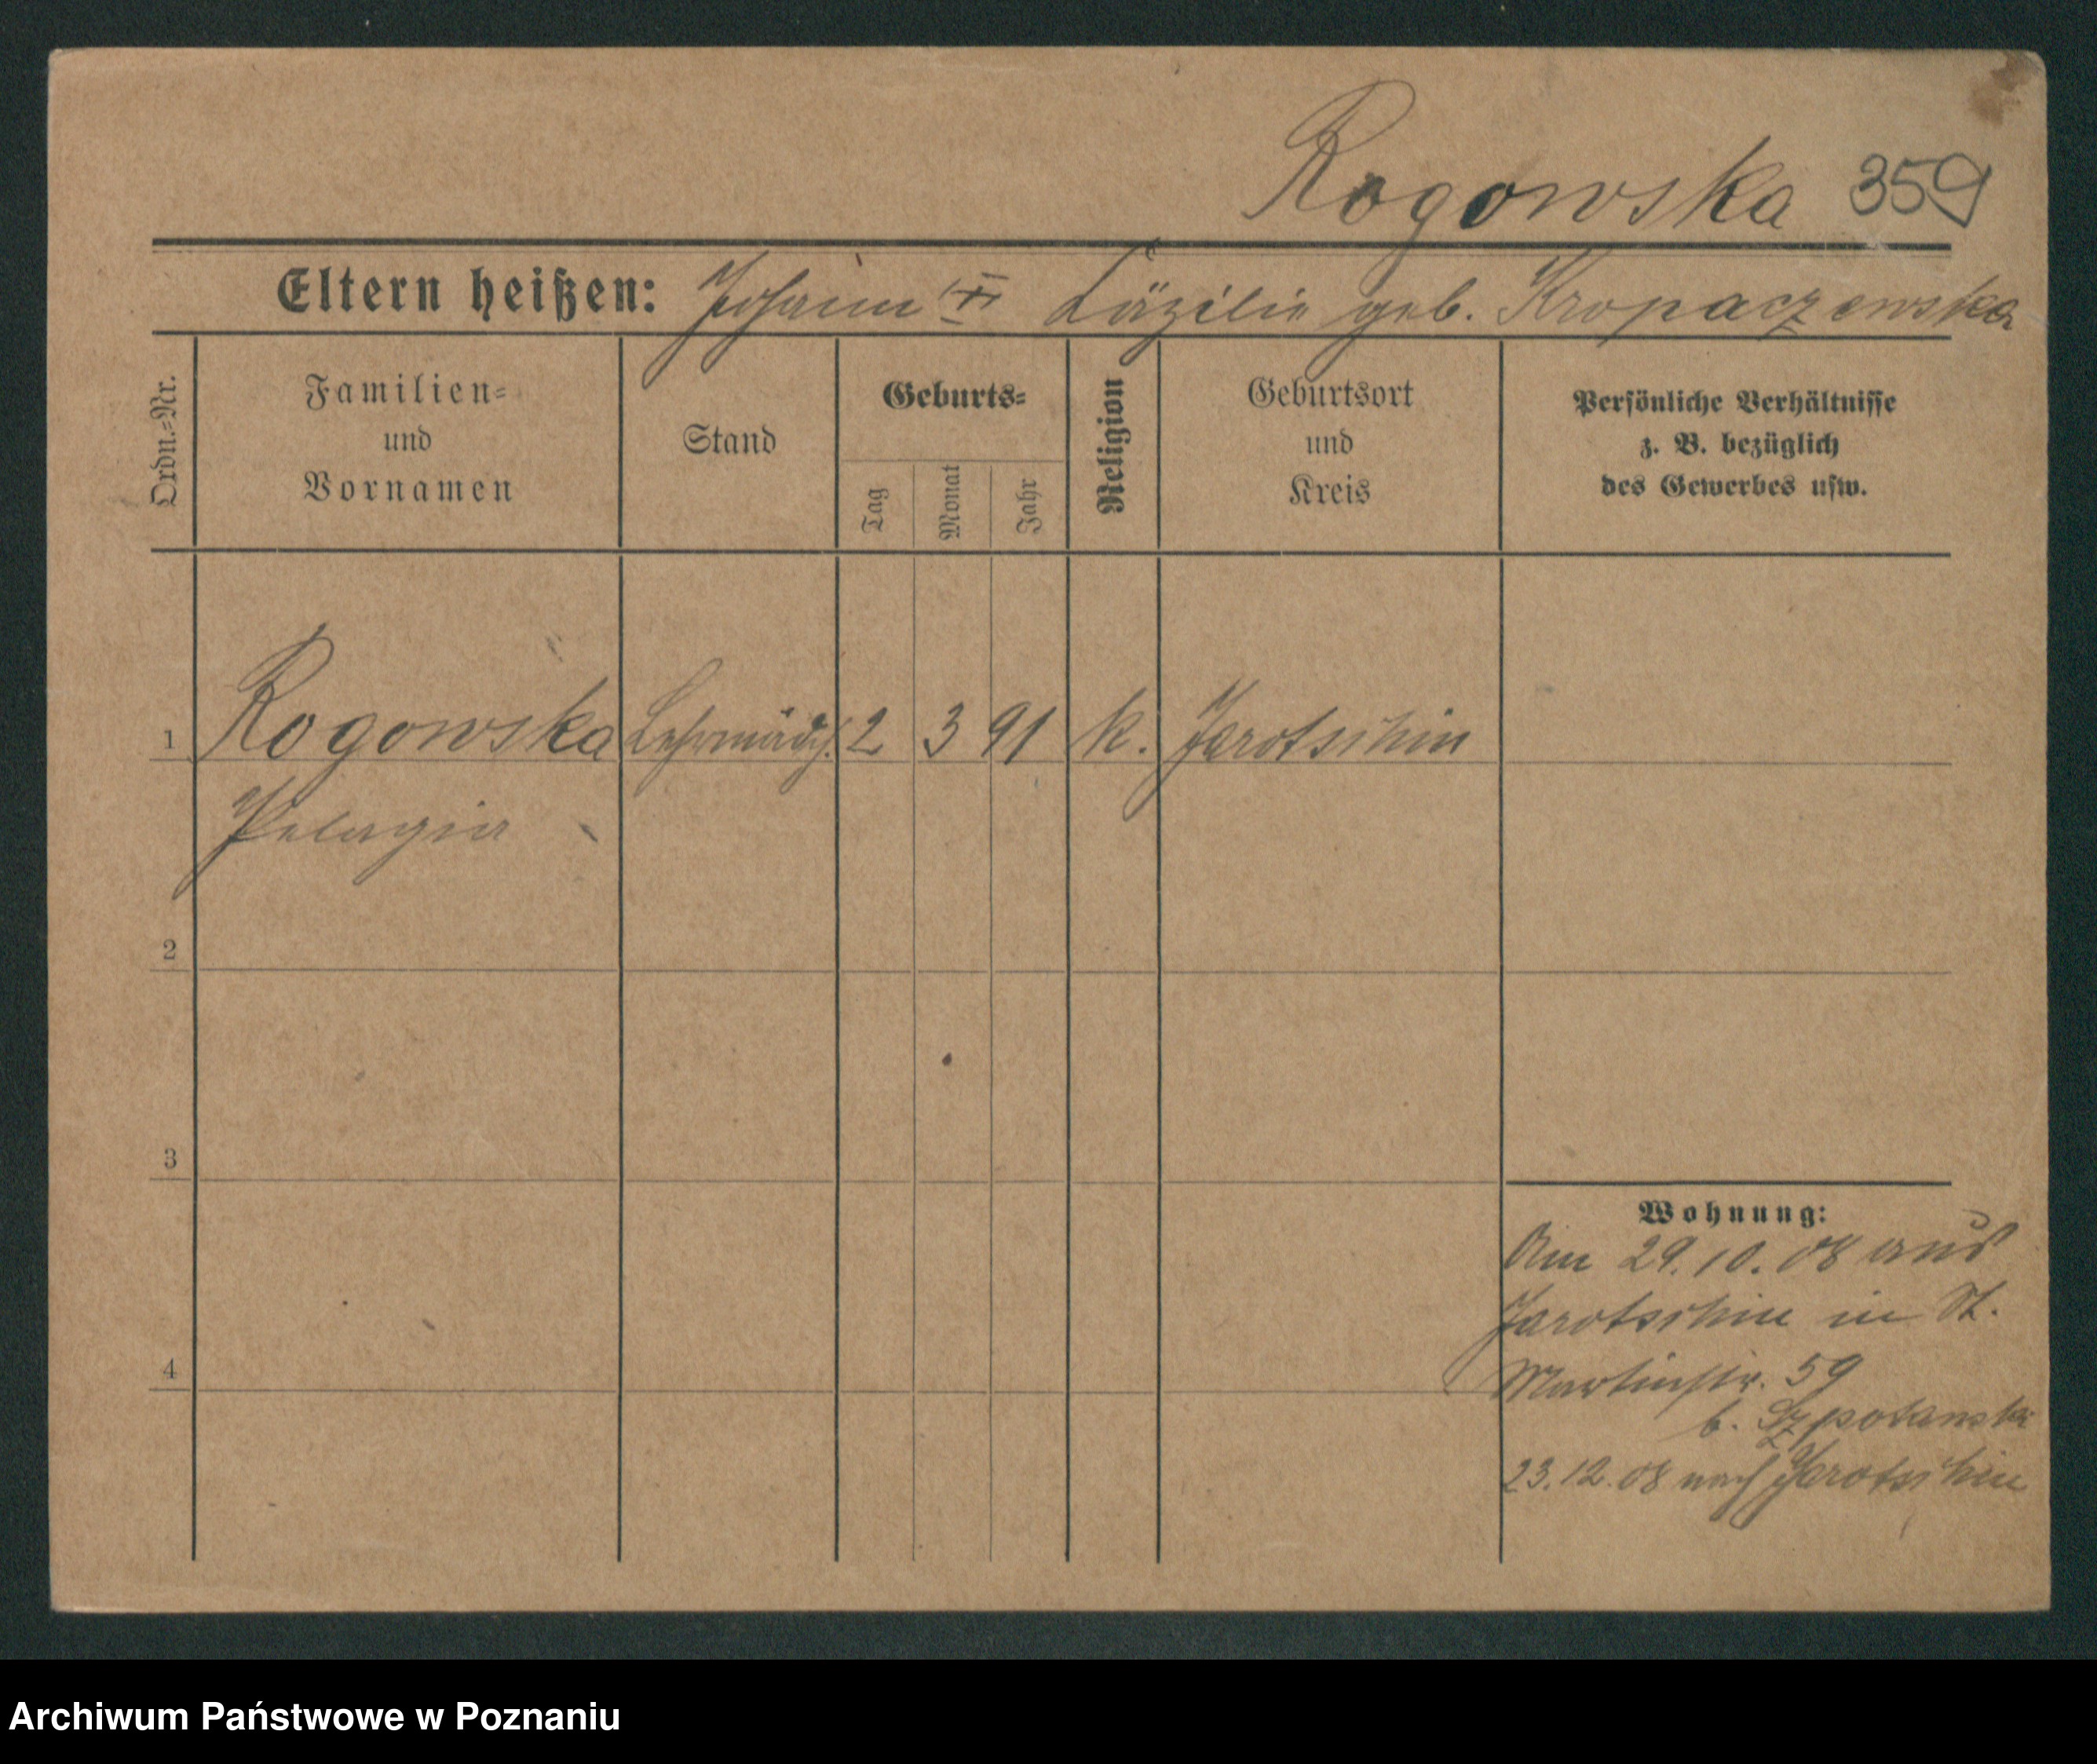 Rogowska 359
Eltern heißen: Johann u. Cäzilie geb. Kropaczewska
Ordn.-Nr.
Familien-
und
Vornamen
Stand
Geburts-
Tag
Monat
Jahr
Religion
Geburtsort
und
Kreis
Persönliche Verhältnisse
z. B. bezüglich
des Gewerbes usw.
1 Rogowska Lehrmädch. 2 3 91 k. Jarotschin
Pelagia
2
3
4
Wohnung:
Am 29.10.08 aus
Jarotschin in St.
Martinstr. 59
b. Szpotanska
23.12.08 nach Jarotschin
Archiwum Państwowe w Poznaniu